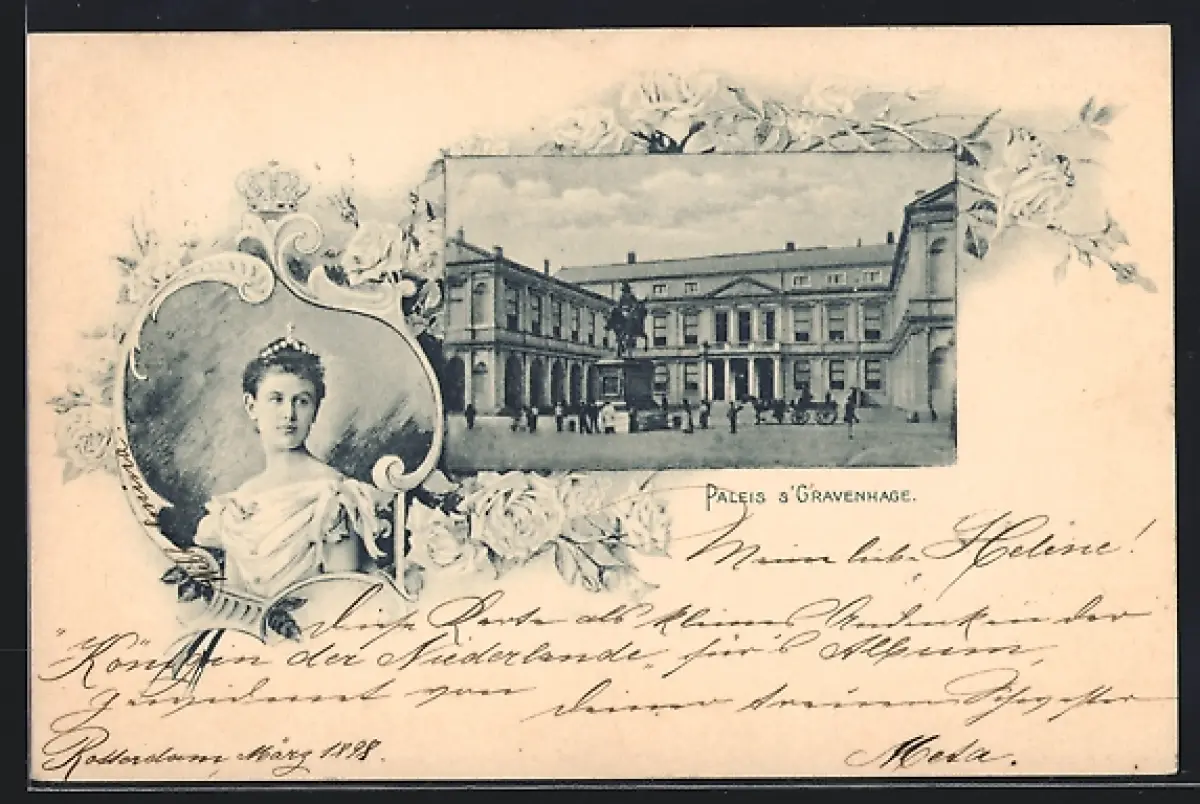 PALEIS S'GRAVENHAGE.
Meine liebe Helene!
Diese Karte als kleines Andenken der
"Königin der Niederlande" für's Album,
gewidmet von deiner treuen Schwester
Rotterdam, März 1898. Meta.